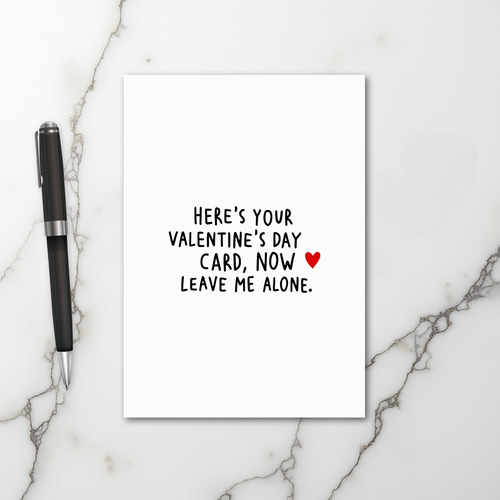 HERE'S YOUR
VALENTINE'S DAY
CARD, NOW
LEAVE ME ALONE.